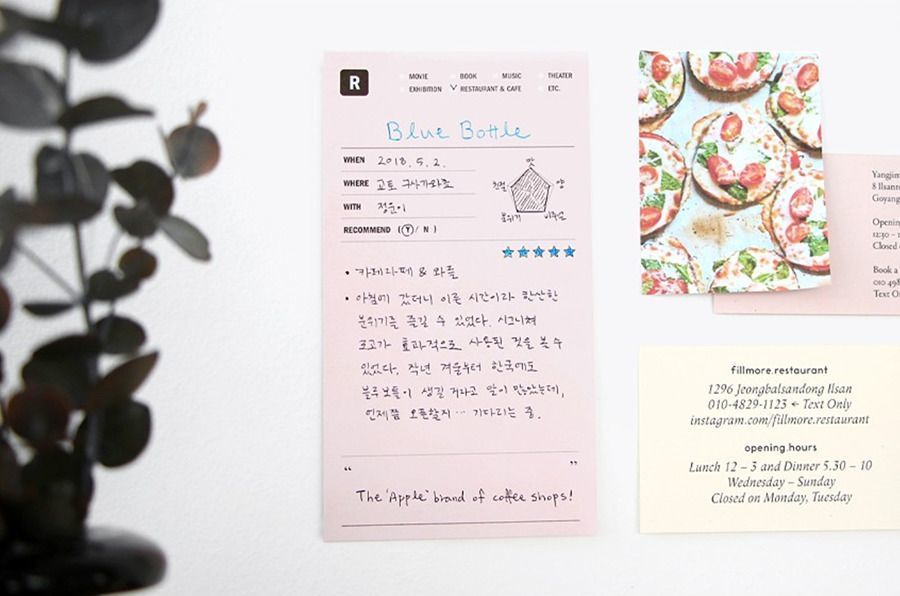 R
MOVIE BOOK MUSIC THEATER
EXHIBITION RESTAURANT & CAFE ETC.
Blue Bottle
WHEN 2018. 5. 2.
WHERE 교토
WITH 정윤이
RECOMMEND (Y / N)
맛
친절 양
분위기
• 카페라떼 & 와플
• 아침에 갔더니 이른 시간이라 한산한
분위기를 즐길 수 있었다. 시그니쳐
로고가 효과적으로 사용된 것을 볼 수
있었다. 작년 겨울부터 한국에도
블루보틀이 생길 거라고 말이 많았는데,
언제쯤 오픈할지… 기다리는 중.
“ ”
The 'Apple' brand of coffee shops!
Yangjim
8 Ilsanro
Goyang
Opening
12:30 –
Closed
Book a
010 498
Text O
fillmore.restaurant
1296 Jeongbalsandong Ilsan
010-4829-1123 ← Text Only
instagram.com/fillmore.restaurant
opening.hours
Lunch 12 – 3 and Dinner 5.30 – 10
Wednesday – Sunday
Closed on Monday, Tuesday